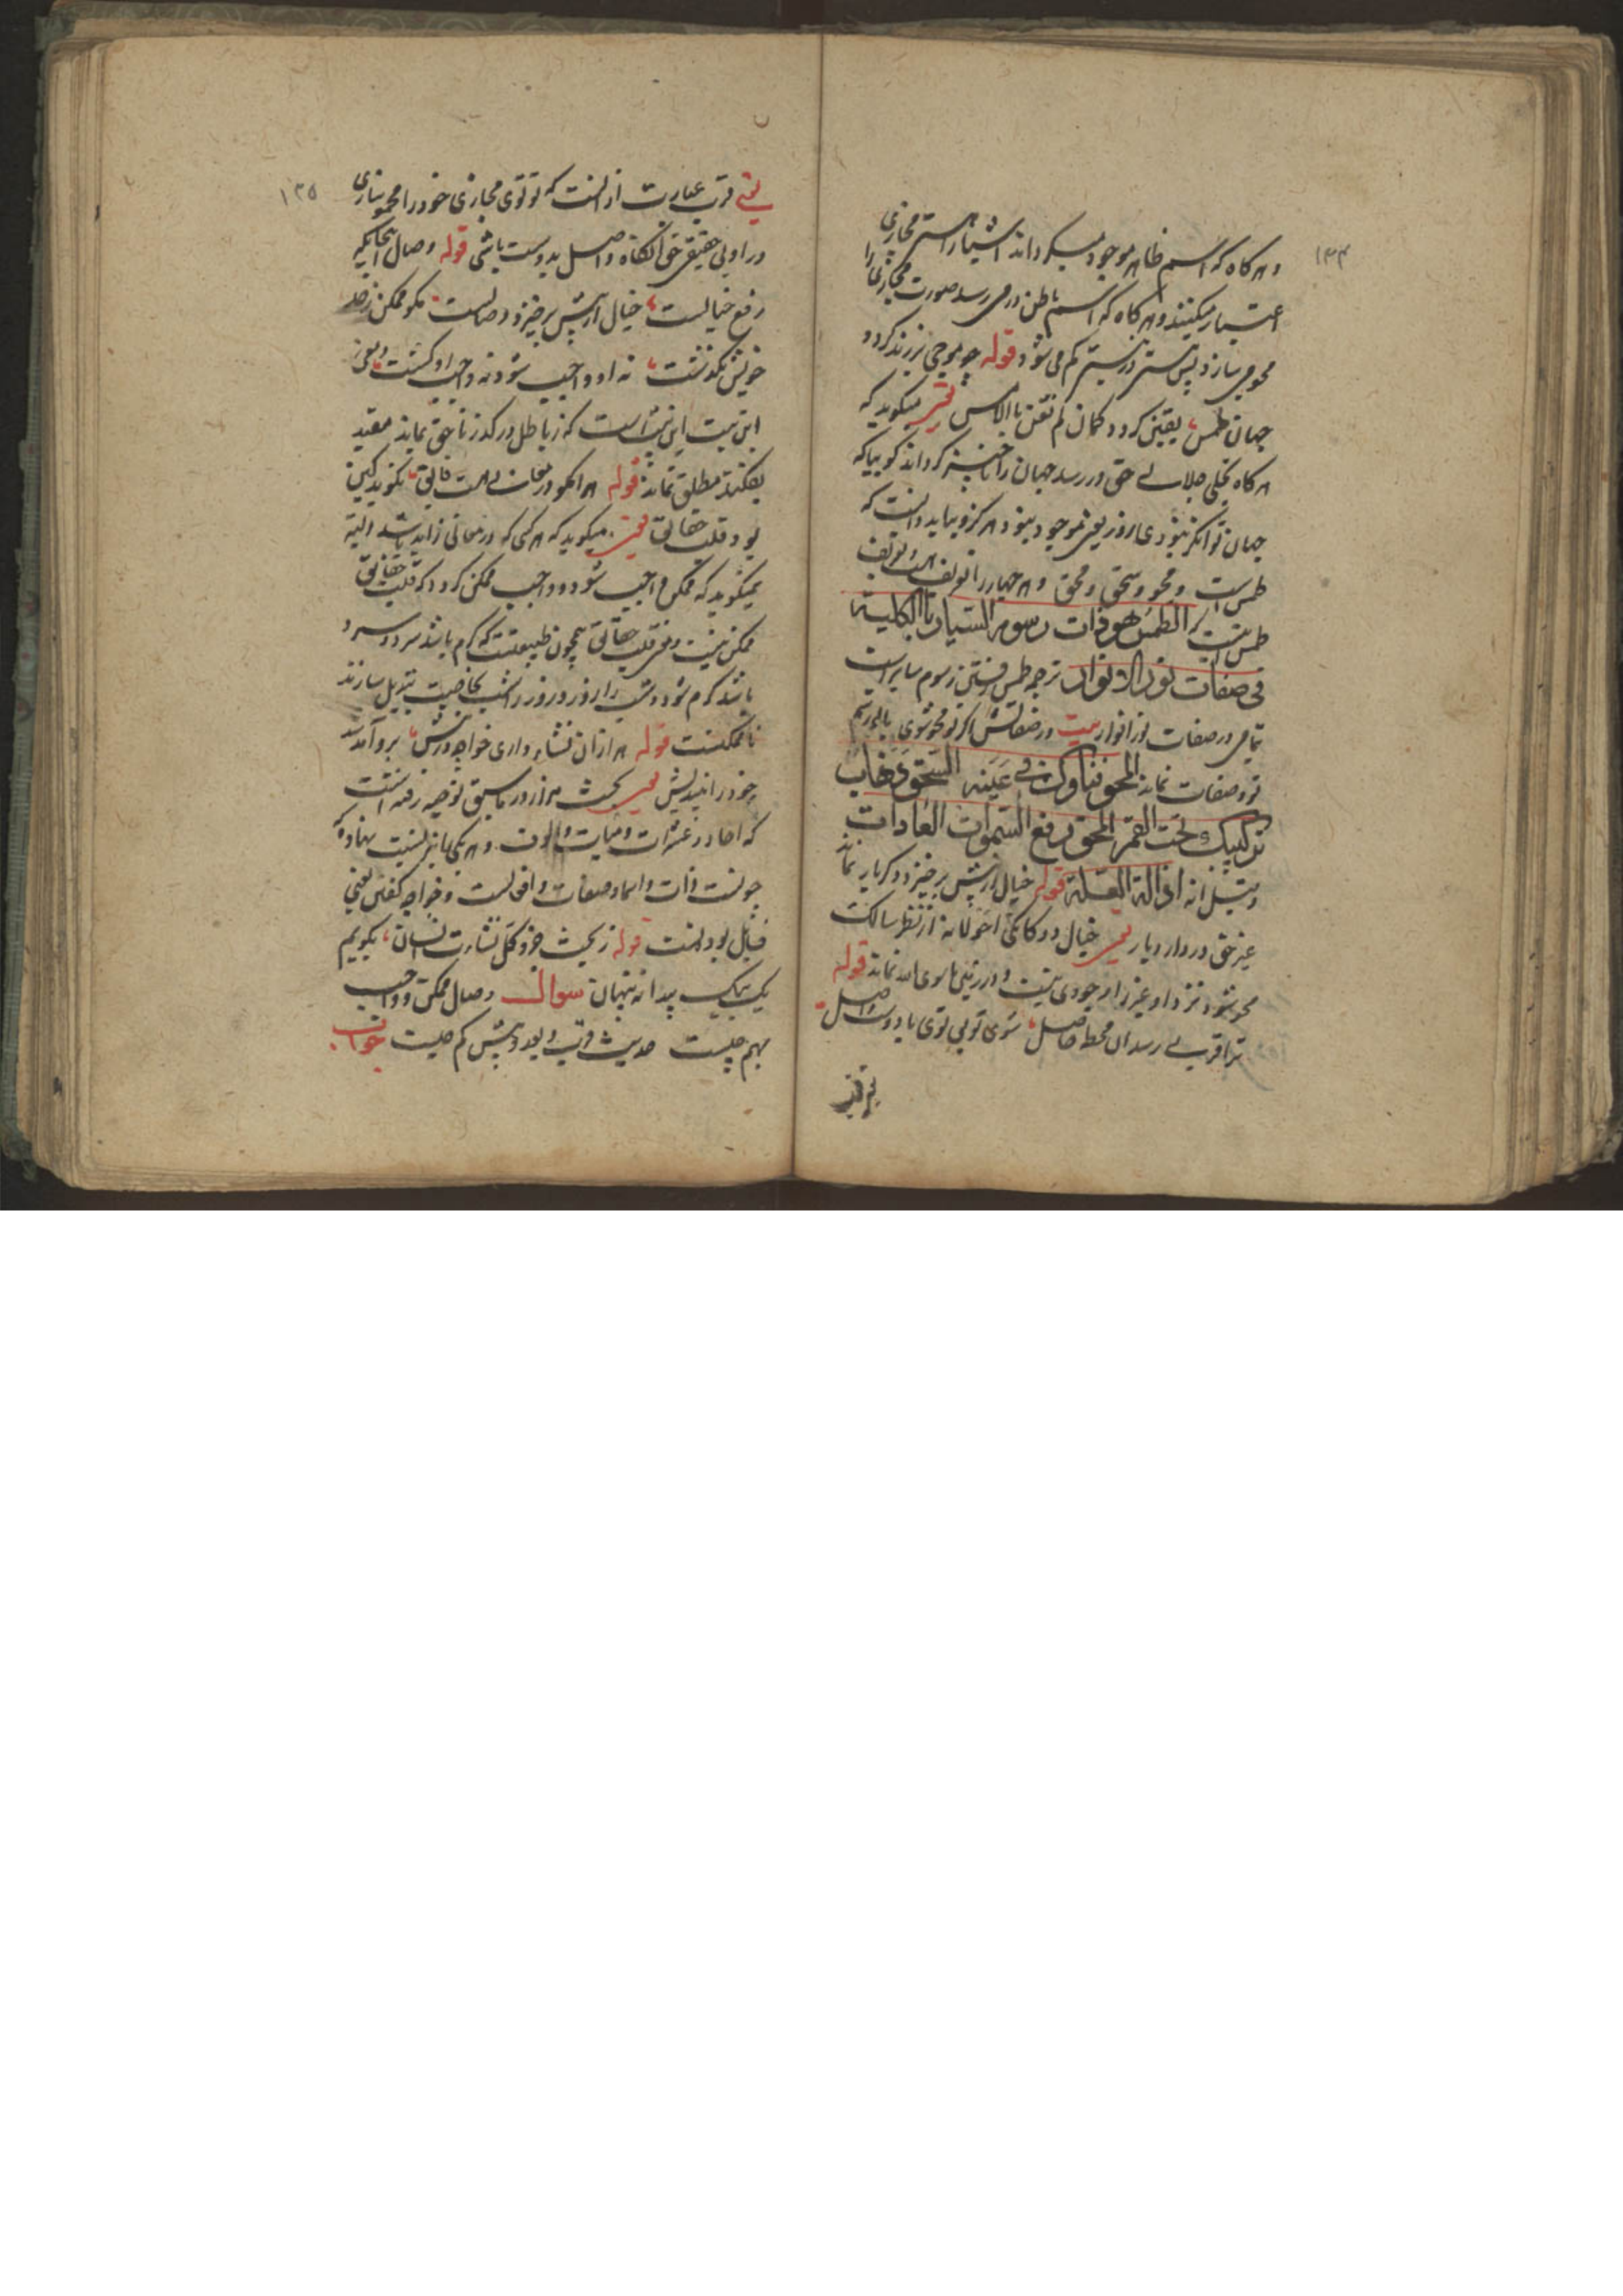 ۱۳۴
و هر گاه که اسم ظاهر موجود میکرداند اشیا را هستی مجازی
اعتبار میکنند و هر گاه که اسم باطن در می رسد صورت مجاز را
محو می سازد پس هستی در نیستی کم می شود قوله چو موجی بر زند کردد
جهان طمس یقین کردد کمان لم تغن بالامس یعنی میکوید که
هر گاه تجلی جلالی حق در رسد جهان را ناچیز کرداند کوییا که
جهان تو انکر نبودی امروز یعنی موجود نبود هرکز و بباید دانست که
طمس است و محو و سحق و محق و هر چهار را تعریف است تعریف
طمس اینست الطمس هو ذات رسوم السیار بالکلیة
فی صفات نور الانوار ترجمه طمس رفتن رسوم سایر است
تمامی در صفات نور انوار بیت در صفاتش اگر تو محو شوی
تو و صفات نماند المحو فناوک فی عینه السحق ذهاب
ترکیبک تحت القمر المحق رفع السموات العادات
وقیل انه ازالة العلة قوله خیال از پیش برخیزد دکر بار نماند
غیر حق در دار دیار یعنی خیال دوکانکی احولانه از نظر سالک
محو شود نزد او غیر را وجودی نیست و در زمین ما سوی الله نماند قوله
ترا قربی رسد آن لحظه حاصل شوی تو بی توی با دوست واصل
۱۳۵
یعنی قرب عبارت از انست که تو توی مجازی خود را محو سازی
در اوی حقیقی حق آنکاه واصل بدوست باشی قوله وصال اینجایکه
رفع خیالست خیال از پیش برخیزد وصالست مکو ممکن ز حد
خویش بکذشت نه او واجب شود نه واجب او کشت یعنی
این بیت این بیت است که ز باطل در کذر تا حق بماند مقید
بفکند مطلق نماند قوله هر انکو در معانیست فایق نکوید کین
بود قلب حقایق یعنی میکوید که هر کسی که در معانی زاید باشد البته
نمیکوید که ممکن واجب شود و واجب ممکن کردد که قلب حقایق
ممکن نیست و معنی قلب حقایق همچون طبیعتست که کرم باشد سرد و سرد
باشد کرم شود و شب را روز و روز را شب بخاصیت تبدیل سازند
ناممکنست قوله هزاران نشاه داری خواجه در پیش برو آمد شد
خود را بیندیش یعنی بحث هزار در ما سبق توضیح رفته است
که احاد و عشرات و مئات و الوف و هر یکی باین نسبت نهاده
چو نسبت ذات و اسما و صفات و افعالست و خواجه کفتن یعنی
قابل بود است قوله ز بحث جزو و کل نشات انسان بکویم
یک بیک پیدا نه پنهان سوال وصال ممکن و واجب
بهم چیست حدیث قرب و بعد و بیش و کم چیست جواب